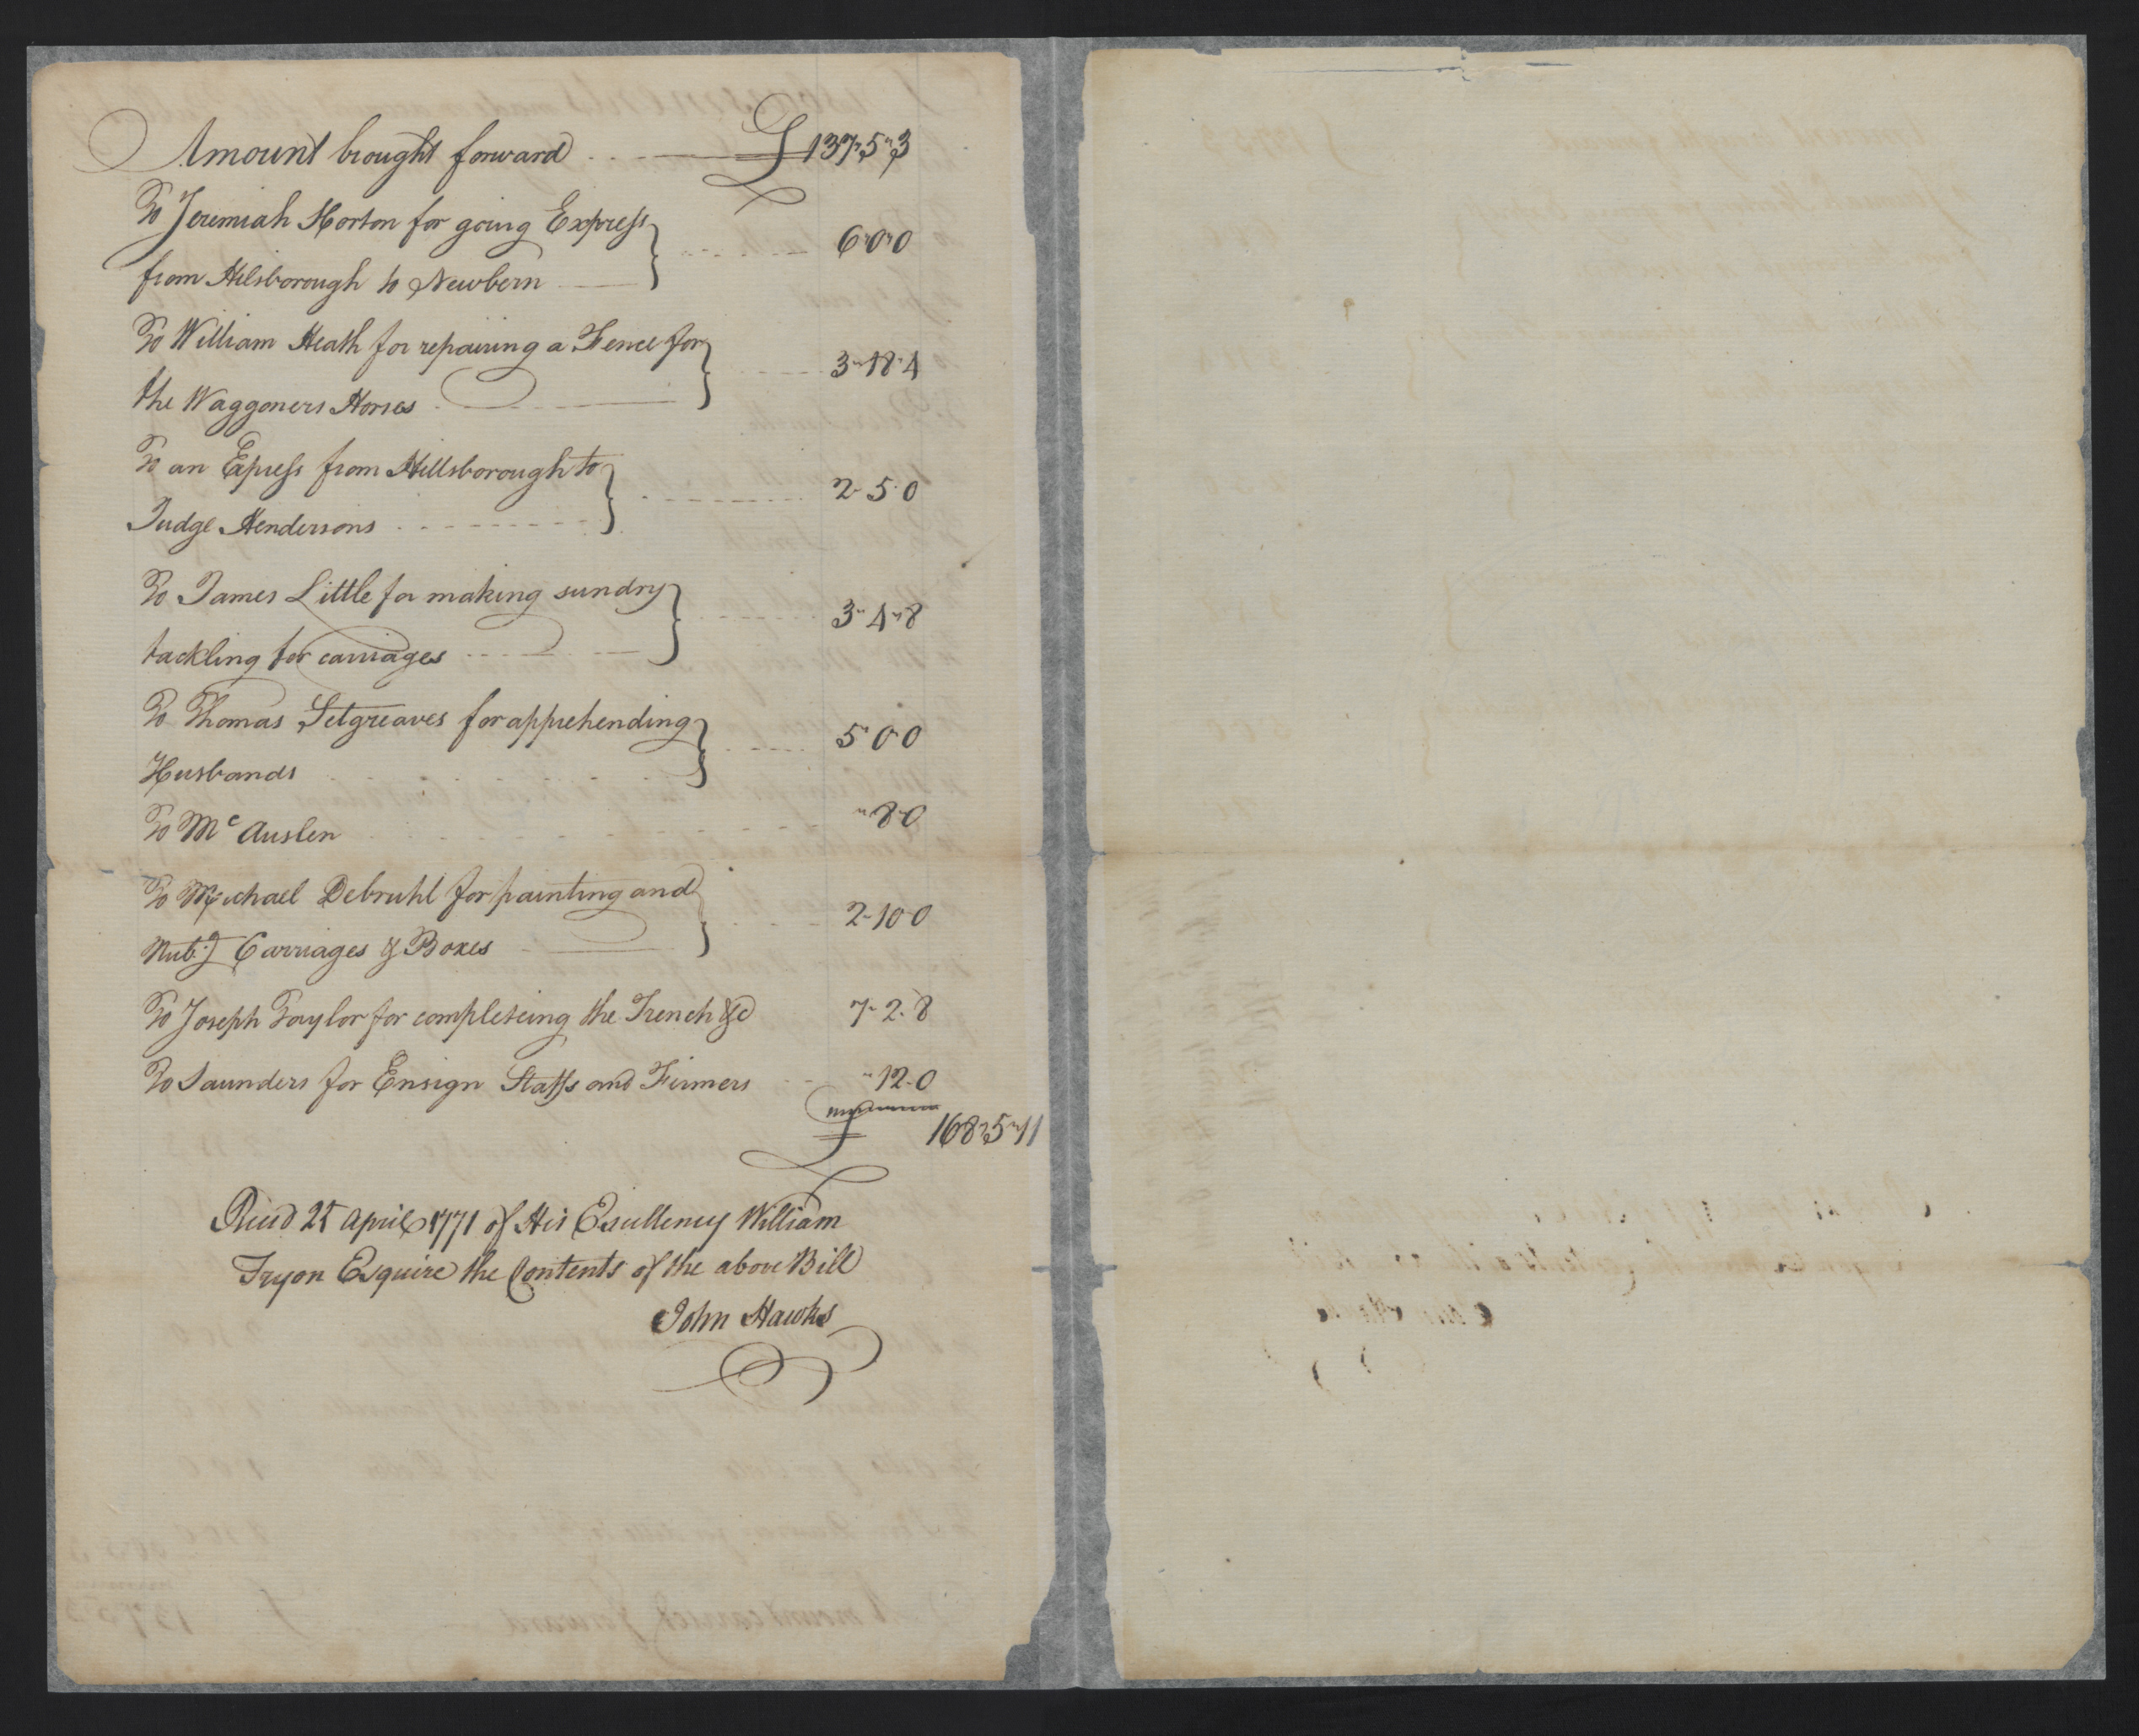 Amount brought forward £ 137"5"3
To Jeremiah Horton for going Express
from Hilsborough to Newbern 6"0"0
To William Heath for repairing a Fence for
the Waggoners Horses 3"18"4
To an Express from Hillsborough to
Judge Hendersons 2"5"0
To James Little for making sundry
tackling for carriages 3"4"8
To Thomas Sitgreaves for apprehending
Husbands 5"0"0
To Mc Auslen "8"0
To Michael Debruhl for painting and
Carriages & Boxes 2"10"0
To Joseph Taylor for completeing the Trench &c 7"2"8
To Saunders for Ensign Staffs and Firmers "12"0
£ 168"5"11
Recd April 1771 of His Excellency William
Tryon Esquire the Contents of the above Bill
John Hawks